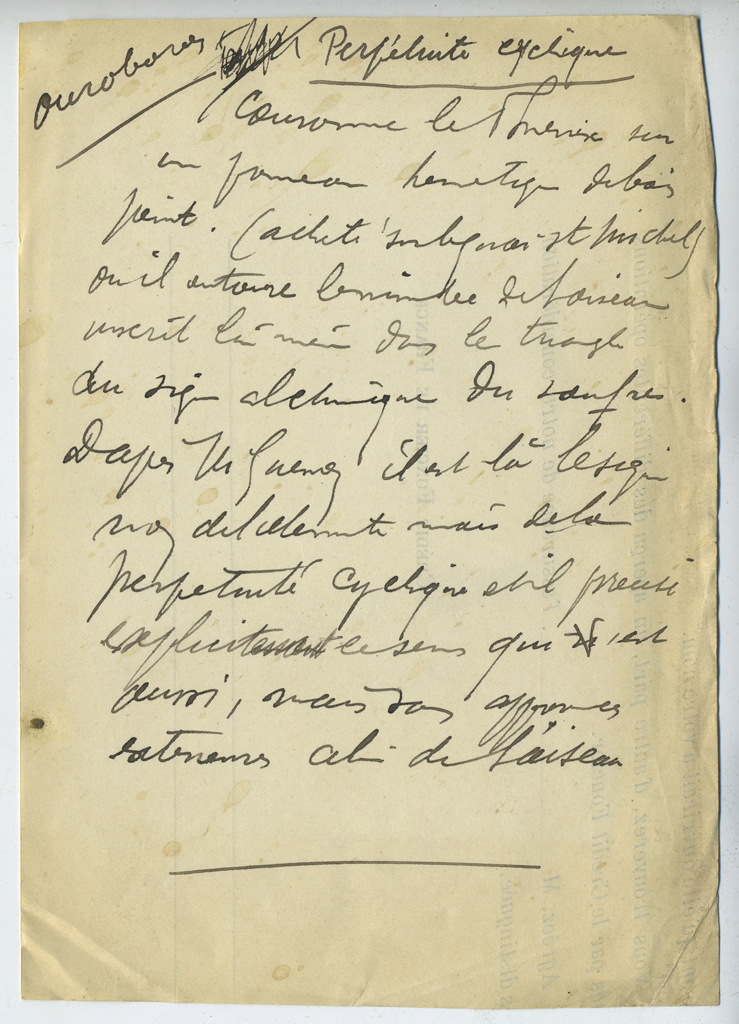 ouroboros Perpétuité cyclique
Couronne le Phenix sur
un panneau hermetique de bois
peint. (acheté sur le quai St Michel)
ou il entoure le nimbe de l'oiseau
inscrit lui meme dans le triangle
du signe alchimique du soufre.
D'apres M Guenon il est là le signe
non de l'eternité mais de la
perpetuité cyclique et il precise
explicite le sens qui est
aussi, mais sans apparences
exterieures celui de l'oiseau